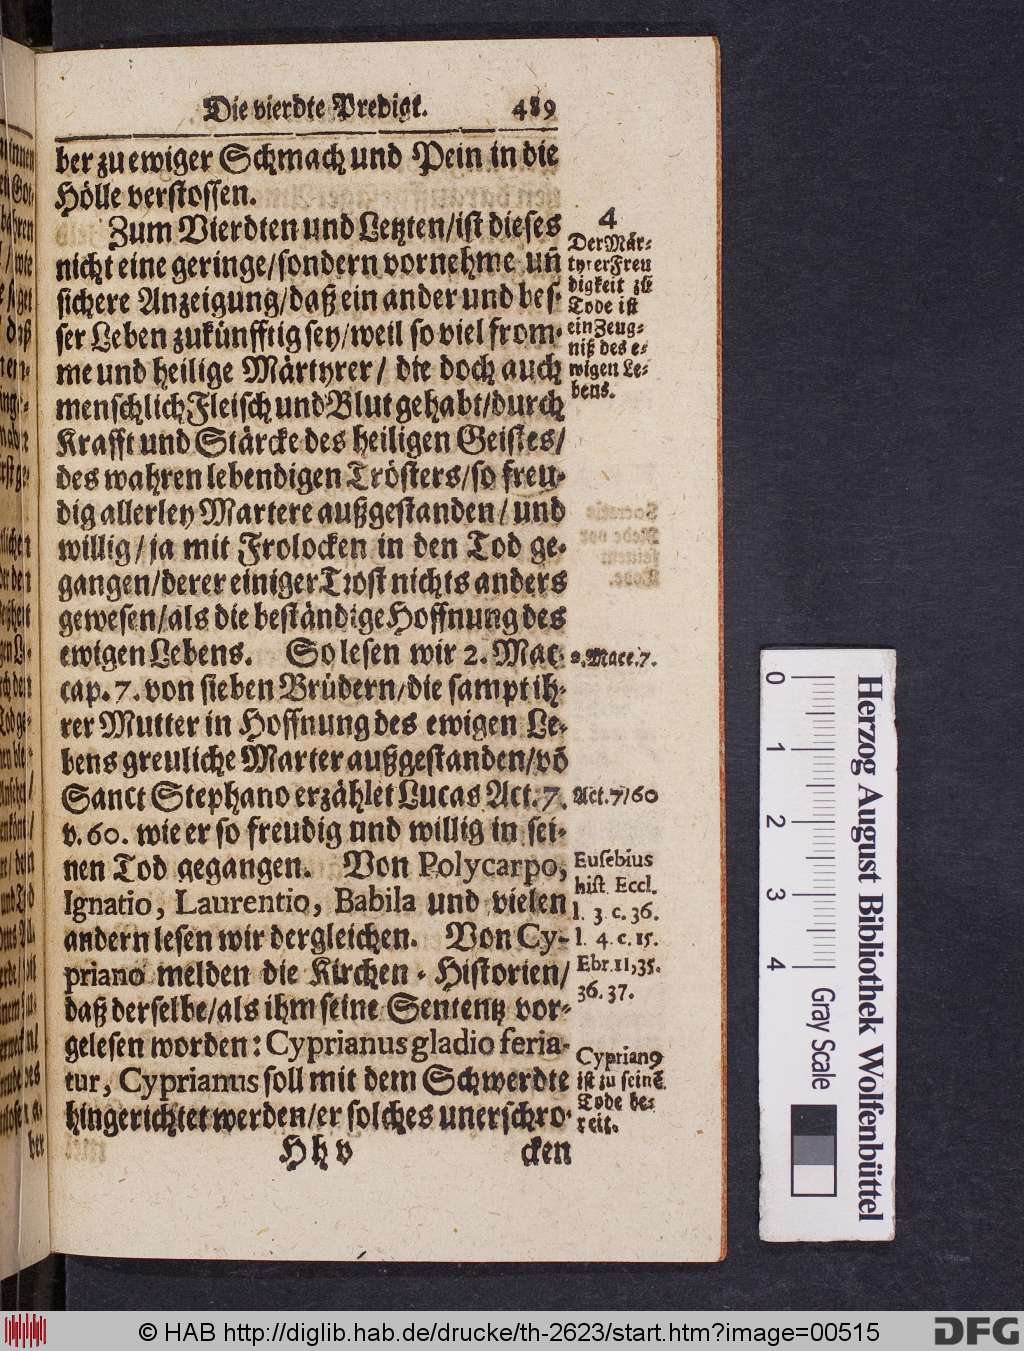 Die vierdte Predigt. 489
ber zu ewiger Schmach und Pein in die
Hölle verstossen.
Zum Vierdten und Letzten/ist dieses
nicht eine geringe/sondern vornehme uñ
sichere Anzeigung/daß ein ander und bes-
ser Leben zukünfftig sey/weil so viel from-
me und heilige Märtyrer/ die doch auch
menschlich Fleisch und Blut gehabt/durch
Krafft und Stärcke des heiligen Geistes/
des wahren lebendigen Trösters/so freu-
dig allerley Martere außgestanden/ und
willig/ ja mit Frolocken in den Tod ge-
gangen/derer einiger Trost nichts anders
gewesen/als die beständige Hoffnung des
ewigen Lebens. So lesen wir 2. Mac.
cap. 7. von sieben Brüdern/die sampt ih-
rer Mutter in Hoffnung des ewigen Le-
bens greuliche Marter außgestanden/võ
Sanct Stephano erzählet Lucas Act. 7.
v. 60. wie er so freudig und willig in sei-
nen Tod gegangen. Von Polycarpo,
Ignatio, Laurentio, Babila und vielen
andern lesen wir dergleichen. Von Cy-
priano melden die Kirchen-Historien/
daß derselbe/als ihm seine Sententz vor-
gelesen worden: Cyprianus gladio feria-
tur, Cyprianus soll mit dem Schwerdte
hingerichtet werden/er solches unerschro-
H h v cken
4
Der Mär-
tyrer Freu
digkeit zũ
Tode ist
ein Zeug-
niß des e-
wigen Le-
bens.
2. Macc. 7.
Act. 7/60
Eusebius
hist. Eccl.
l. 3. c. 36.
l. 4. c. 15.
Ebr. 11, 35.
36. 37.
Cyprianꝰ
ist zu seinẽ
Tode be-
reit.
ber
0 1 2 3 4
Gray Scale
Herzog August Bibliothek Wolfenbüttel
© HAB http://diglib.hab.de/drucke/th-2623/start.htm?image=00515
DFG